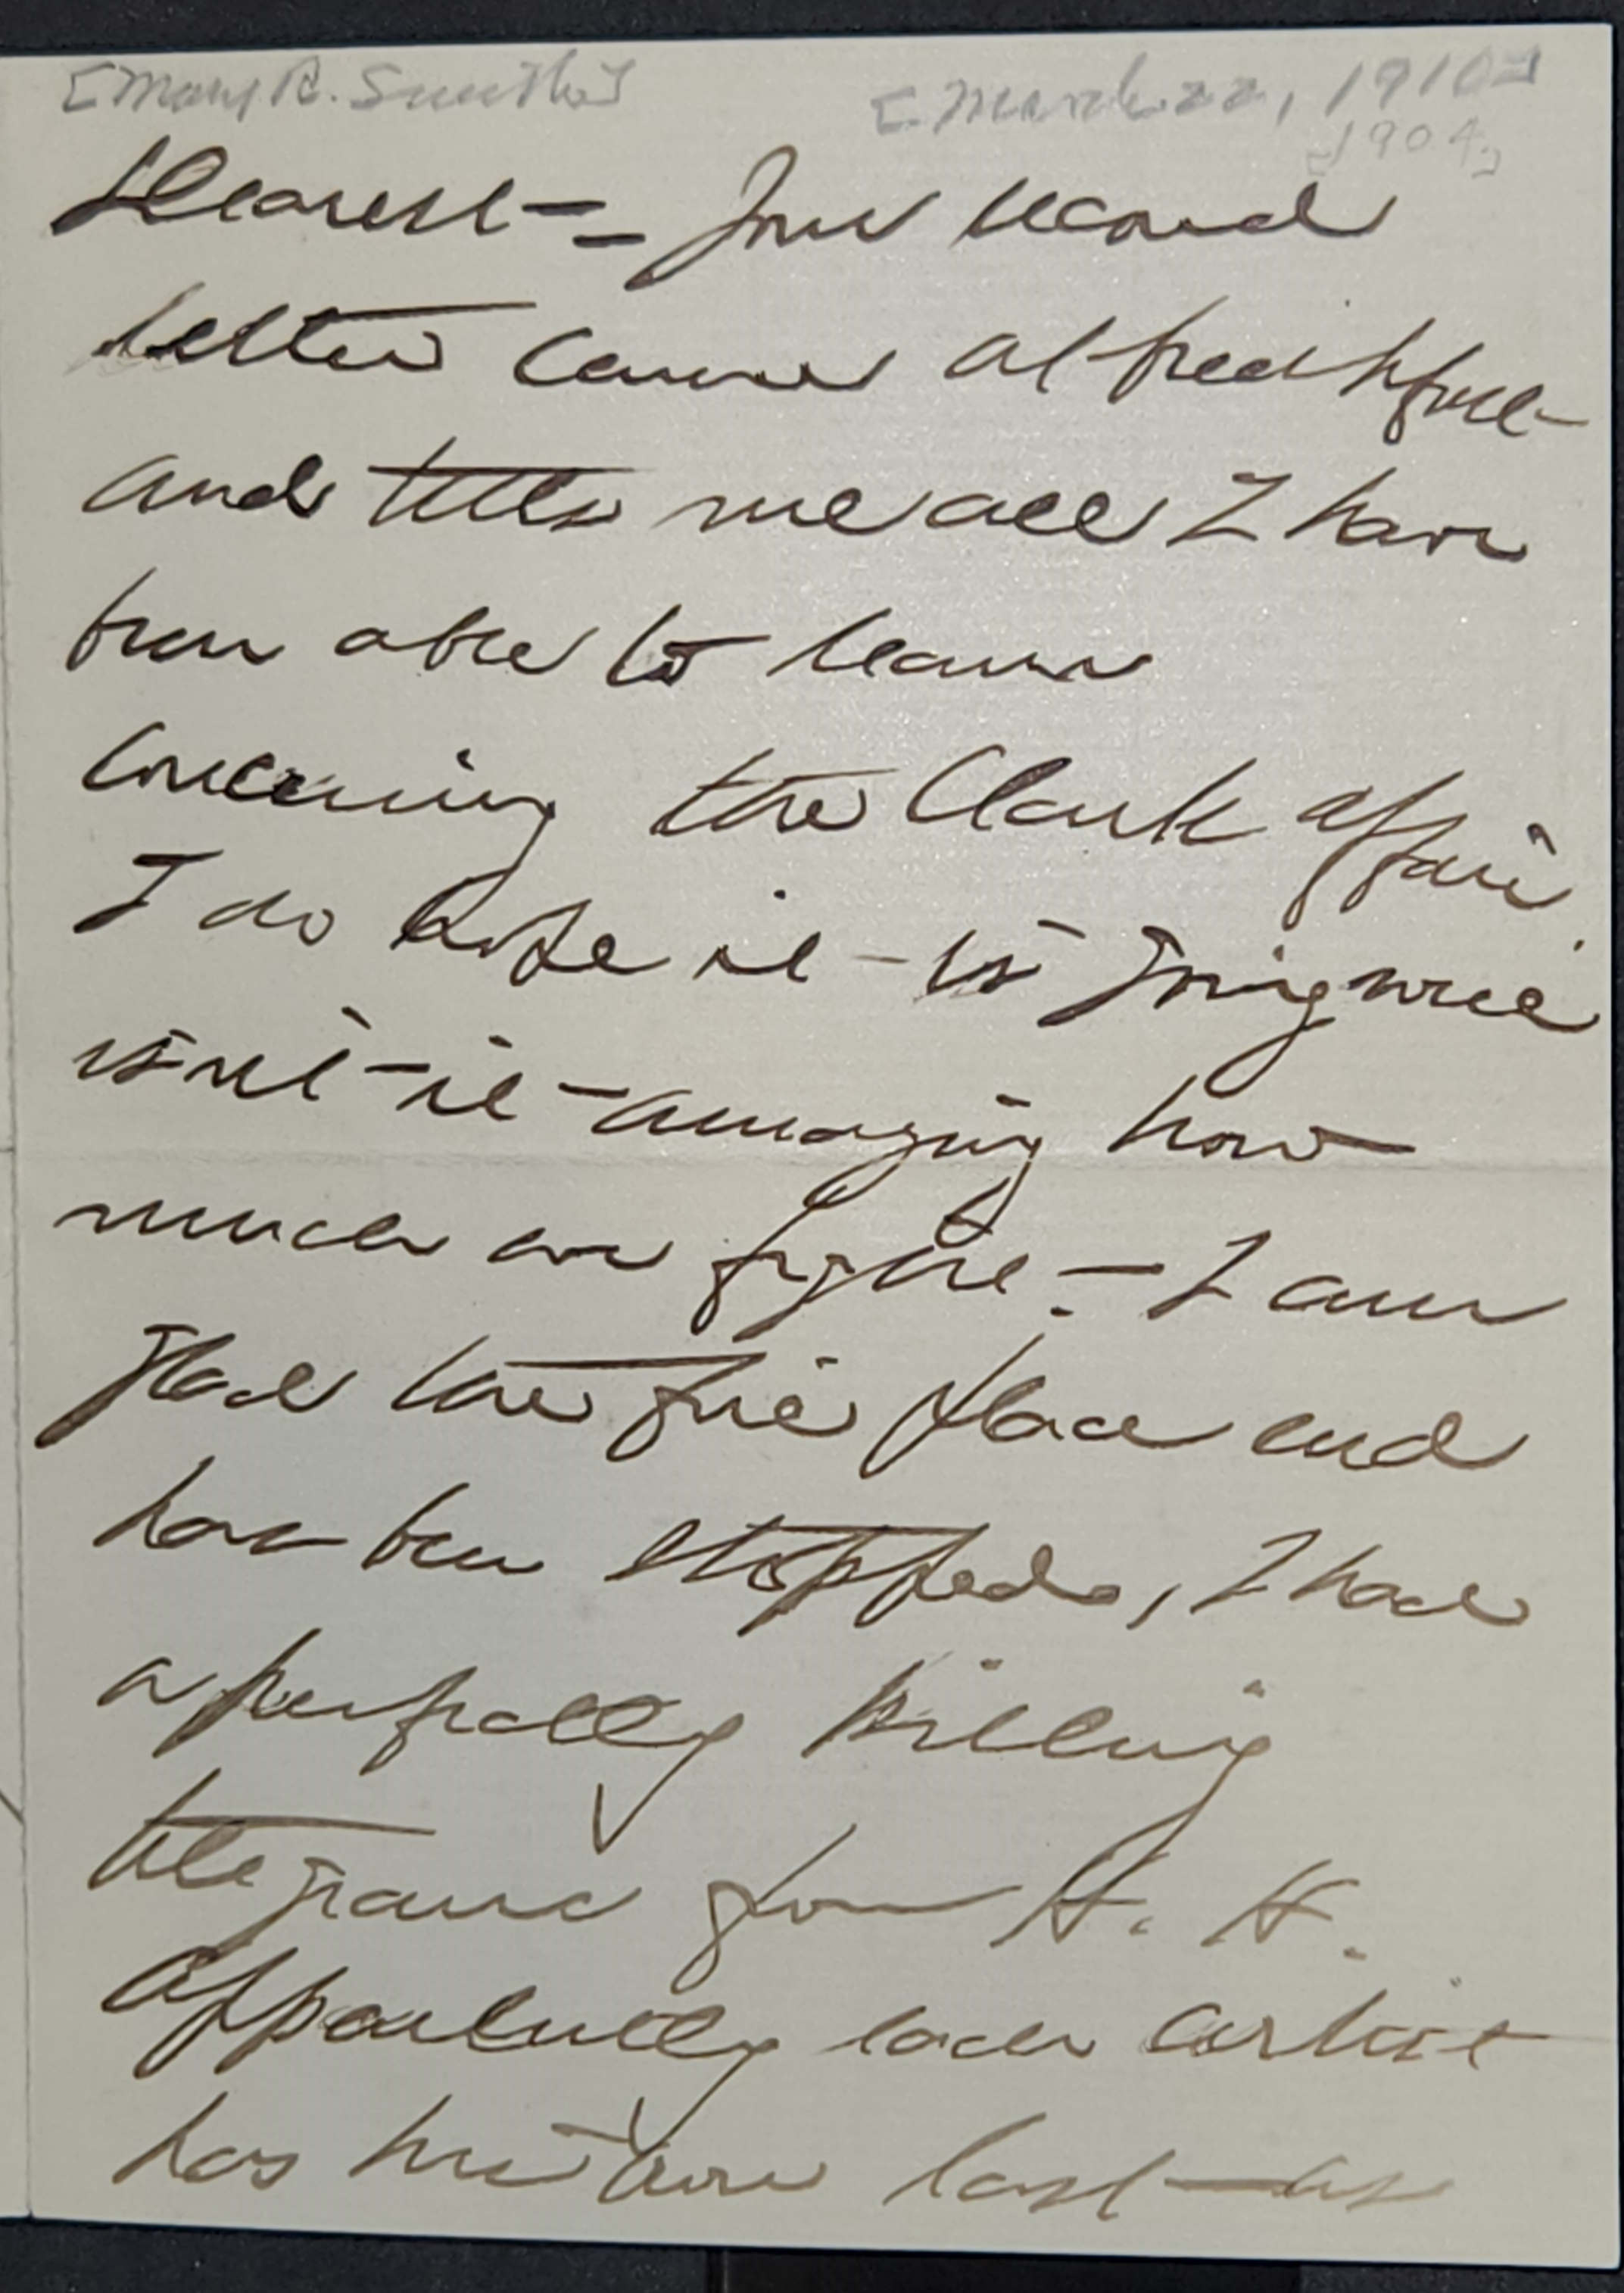 [Mary R. Smith] [March 22, 1910]
[1904]
Dearest — Your second
letter came at breakfast
and tells me all I have
been able to learn
concerning the Clark affair.
I do hope it is going well
isn't it amazing how
much we fight — I am
glad the fire place and
have been stopped, I had
a perfectly killing
telegram from H. H.
apparently each artist
has his own last —